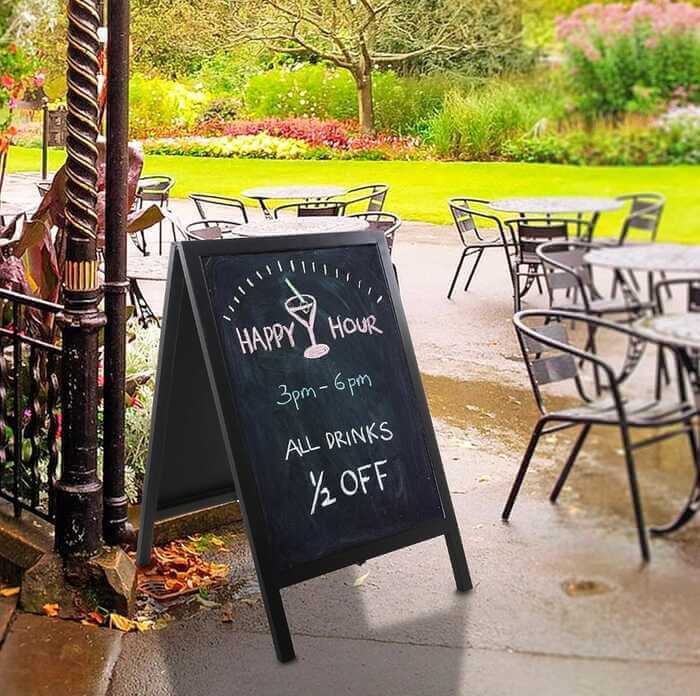 HAPPY HOUR
3pm - 6pm
ALL DRINKS
½ OFF